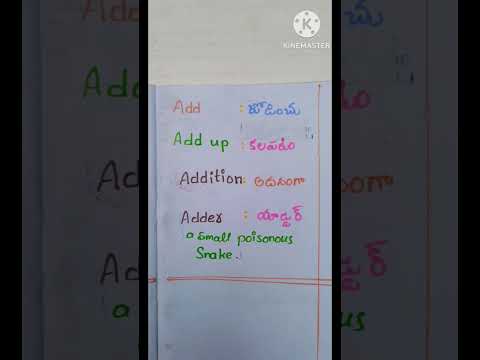 KINEMASTER
Add : జోడించు
Add up : కలపడం
Addition : అదనంగా
Adder : యాడ్డర్
a small poisonous
Snake.